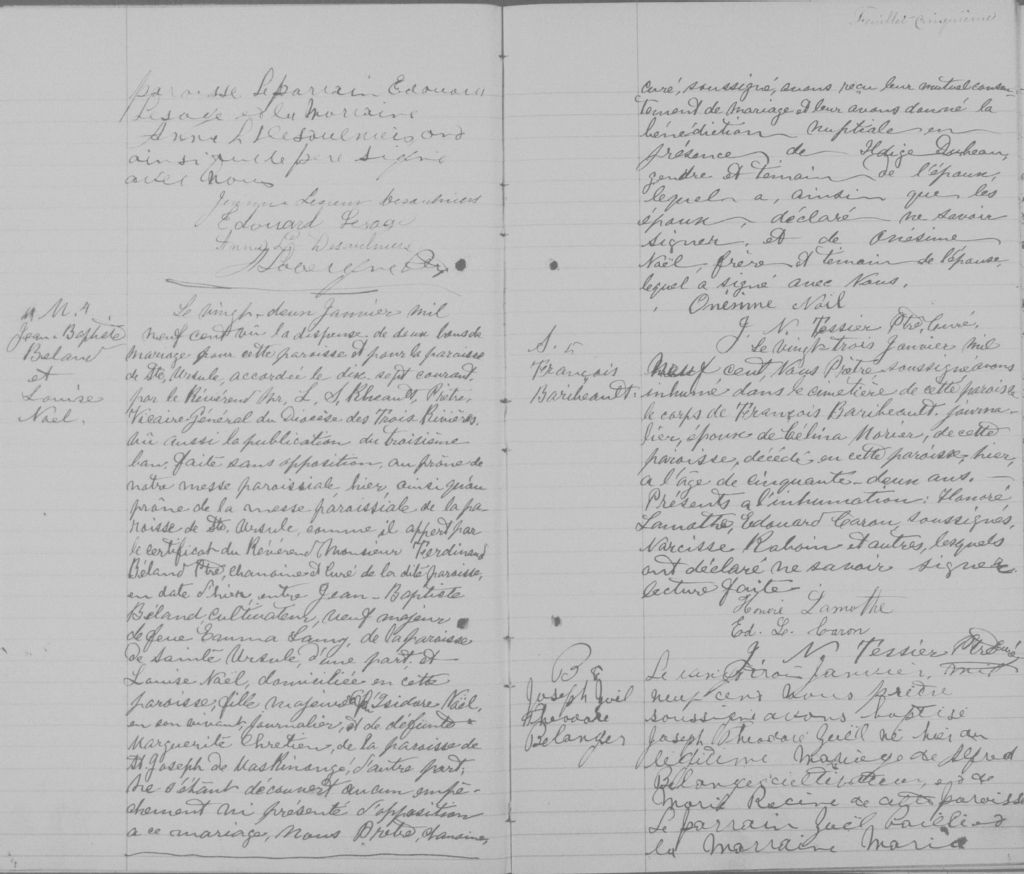 paroisse Le parrain Edouard
Lesage et la Marraine
Anna L Desaulniers ont
ainsi que le père signé
avec nous
Lesieur Desaulniers
Edouard Lesage
Anna L Desaulniers
M. 4
Jean-Baptiste
Béland
et
Louise
Noël.
Le vingt-deux Janvier mil
neuf cent vû la dispense de deux bans de
mariage pour cette paroisse et pour la paroisse
de Ste Ursule, accordée le dix-sept courant
par le Révérend Mr. L. S. Rheault, Prêtre,
Vicaire Général du Diocèse des Trois Rivières,
vû aussi la publication du troisième
ban, faite sans opposition, au prône de
notre messe paroissiale, hier, ainsi qu'au
prône de la messe paroissiale de la pa-
roisse de Ste Ursule, comme il appert par
le certificat du Révérend Monsieur Ferdinand
Béland Ptre, Chanoine et Curé de la dite paroisse,
en date d'hier, entre Jean-Baptiste
Béland, cultivateur, veuf majeur
de feue Emma Lamy, de la paroisse
de Sainte Ursule, d'une part, et
Louise Noël, domiciliée en cette
paroisse, fille majeure d'Isidore Noël,
en son vivant, journalier, et de défunte
Marguerite Chretien, de la paroisse de
St. Joseph de Maskinongé, d'autre part,
ne s'étant découvert aucun empê-
chement ni présenté d'opposition
à ce mariage, Nous Prêtre, chanoine,
Feuillet cinquième
curé, soussigné, avons reçu leur mutuel consen-
tement de mariage et leur avons donné la
bénédiction nuptiale en
présence de Dubeau,
gendre et témoin de l'époux,
lequel a, ainsi que les
époux, déclaré ne savoir
signer, et de Onésime
Noël, frère et témoin de l'épouse,
lequel a signé avec Nous.
Onésime Noël
J. N. Tessier Ptre, curé.
S. 5
François
Baribeault.
Le vingt-trois Janvier mil
neuf cent, Nous Prêtre soussigné, avons
inhumé dans le cimetière de cette paroisse
le corps de François Baribeault, journa-
lier, époux de Célina Morier, de cette
paroisse, décédé en cette paroisse, hier,
à l'âge de cinquante-deux ans.
Présents à l'inhumation: Honoré
Lamothe, Edouard Caron, soussignés,
Narcisse Rabouin et autres, lesquels
ont déclaré ne savoir signer.
Lecture faite
Honoré Lamothe
Ed. L. Caron
J. N. Tessier Ptre Curé
B 8
Joseph Joël
Théodore
Bélanger
Le Janvier, mil
neuf cent nous prêtre
soussigné avons baptisé
Joseph Théodore Joël né hier du
légitime mariage de Alfred
Bélanger cultivateur, et de
Marie Racine de cette paroisse
Le parrain Joël
la Marraine Maria